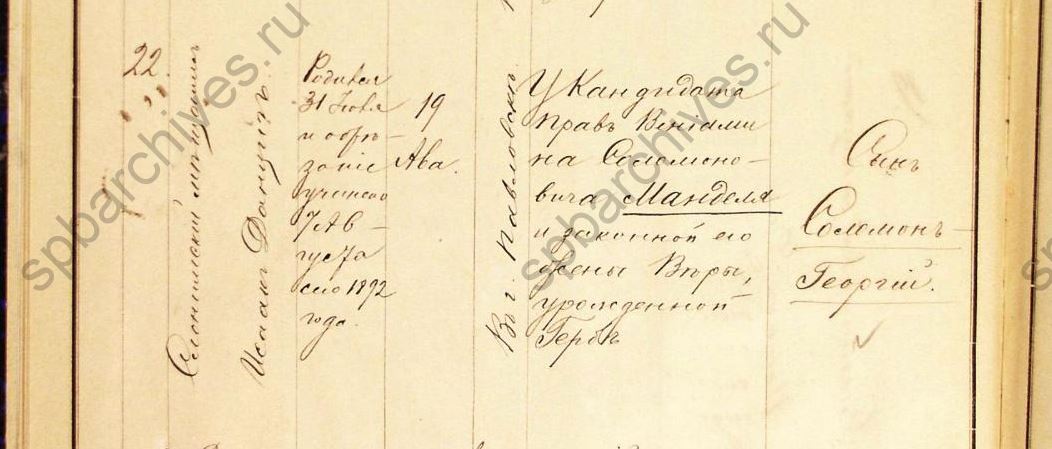 22.
Слонимскій мѣщанинъ
Исаакъ Данцигъ.
Родился
31 Іюля
и обрѣ-
заніе
учинено
7 Ав-
густа
сего 1892
года.
19
Ава.
Въ г. Павловскѣ.
У Кандидата
правъ Веніами
на Соломоно-
вича Манделя
и законной его
жены Вѣры,
урожденной
Гербъ
Сынъ
Соломонъ-
Георгій.
spbarchives.ru
spbarchives.ru
spbarchives.ru